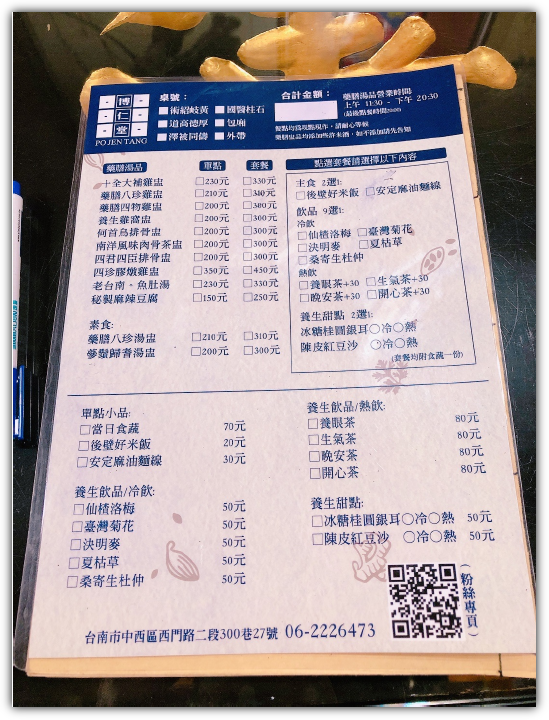 博仁堂
PO JEN TANG
桌號：
□術紹岐黃 □國醫柱石
□道高德厚 □包廂
□澤被同儔 □外帶
合計金額：
藥膳湯品營業時間:
上午 11:30 - 下午 20:30
(最後點餐時間20:00)
餐點均為現點現作，請耐心等候
藥膳盅品均添加些許米酒，如不添加請先告知
藥膳湯品 單點 套餐
十全大補雞盅 □230元 □330元
藥膳八珍雞盅 □210元 □300元
藥膳四物雞盅 □200元 □300元
養生雞窩盅 □200元 □300元
何首烏排骨盅 □200元 □300元
南洋風味肉骨茶盅 □200元 □300元
四君四臣排骨盅 □200元 □300元
四珍膠燉雞盅 □350元 □450元
老台南。魚肚湯 □230元 □330元
秘製麻辣豆腐 □150元 □250元
素食:
藥膳八珍湯盅 □210元 □310元
蔘鬚歸耆湯盅 □200元 □300元
點選套餐請選擇以下內容
主食 2選1:
□後壁好米飯 □安定麻油麵線
飲品 9選1:
冷飲
□仙楂洛梅 □臺灣菊花
□決明麥 □夏枯草
□桑寄生杜仲
熱飲
□養眼茶+30 □生氣茶+30
□晚安茶+30 □開心茶+30
養生甜點 2選1:
冰糖桂圓銀耳○冷○熱
陳皮紅豆沙 ○冷○熱
(套餐均附食蔬一份)
單點小品:
□當日食蔬 70元
□後壁好米飯 20元
□安定麻油麵線 30元
養生飲品/冷飲:
□仙楂洛梅 50元
□臺灣菊花 50元
□決明麥 50元
□夏枯草 50元
□桑寄生杜仲 50元
養生飲品/熱飲:
□養眼茶 80元
□生氣茶 80元
□晚安茶 80元
□開心茶 80元
養生甜點:
□冰糖桂圓銀耳○冷○熱 50元
□陳皮紅豆沙 ○冷○熱 50元
(粉絲專頁)
台南市中西區西門路二段300巷27號 06-2226473